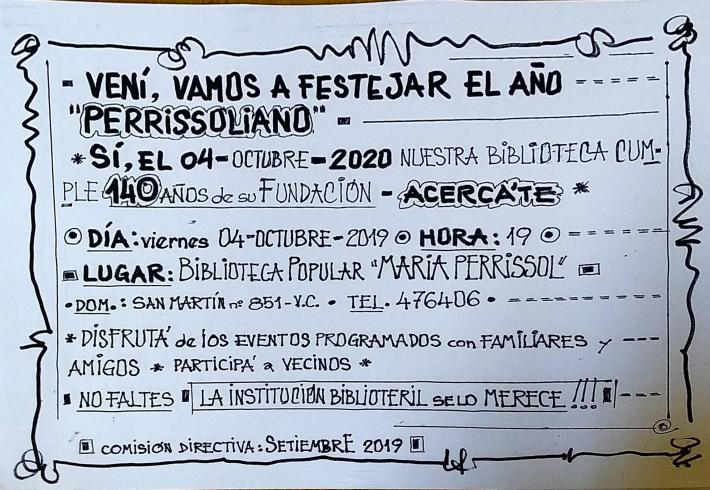 - VENÍ, VAMOS A FESTEJAR EL AÑO -----
"PERRISSOLIANO" -
* SÍ, EL 04-OCTUBRE-2020 NUESTRA BIBLIOTECA CUM-
PLE 140 AÑOS de su FUNDACIÓN - ACERCA'TE *
DÍA: viernes 04-OCTUBRE-2019 HORA: 19 -----
LUGAR: BIBLIOTECA POPULAR "MARÍA PERRISSOL"
• DOM.: SAN MARTÍN nº 851-V.C. • TEL. 476406 • -----
* DISFRUTA' de los EVENTOS PROGRAMADOS con FAMILIARES y ---
AMIGOS * PARTICIPA' a VECINOS *
NO FALTES LA INSTITUCIÓN BIBLIOTERIL SE LO MERECE !!! ---
COMISIÓN DIRECTIVA: SETIEMBRE 2019